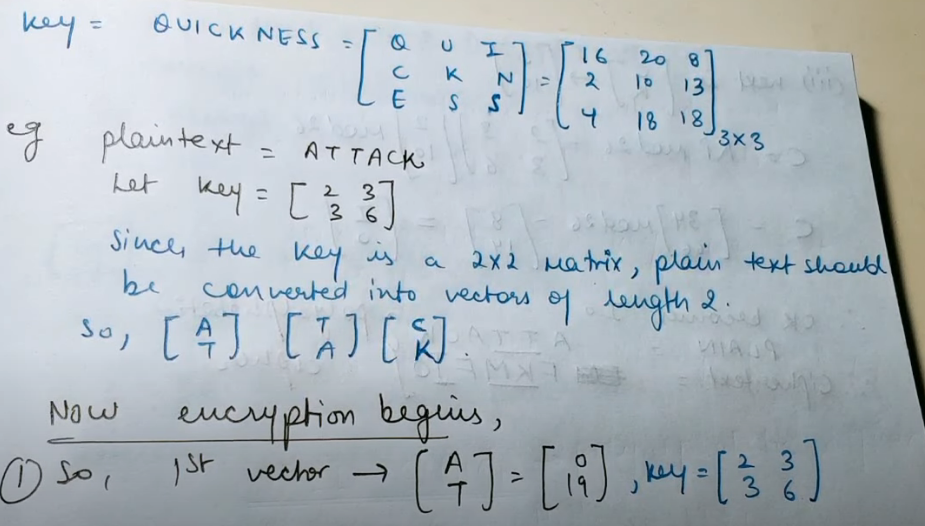 Key = QUICKNESS = [Q U I] = [16 20 8]
[C K N] [2 10 13]
[E S S] [4 18 18] 3x3
eg plaintext = ATTACK
Let key = [2 3]
[3 6]
Since, the key is a 2x2 matrix, plain text should
be converted into vectors of length 2.
So, [A] [T] [C]
[T] [A] [K].
Now encryption begins,
① So, 1st vector → [A] = [0], key = [2 3]
[T] [19] [3 6]